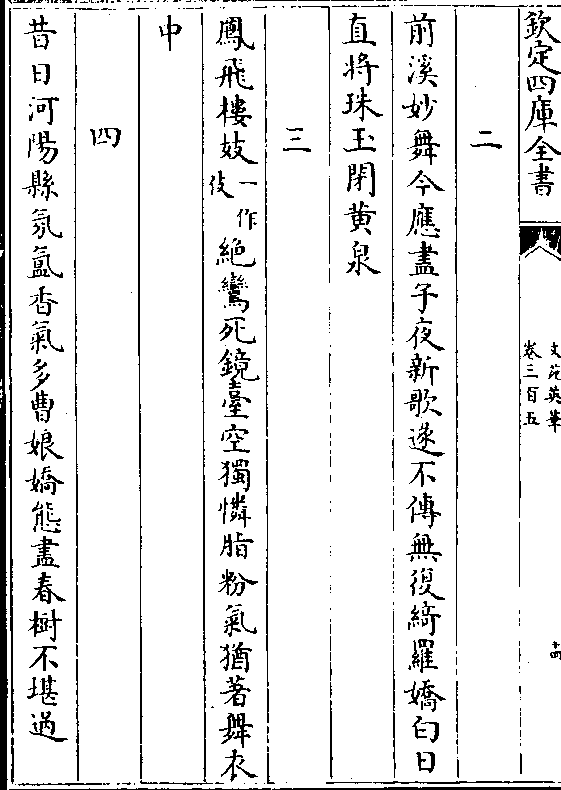 欽定四庫全書
文苑英華
卷三百五
十四
二
前溪妙舞今應盡子夜新歌遂不傳無復綺羅嬌白日
直將珠玉閉黄泉
三
鳳飛樓妓一作伎絶鸞死鏡臺空獨憐脂粉氣猶著舞衣
中
四
昔日河陽縣氛氲香氣多曹娘嬌態盡春樹不堪過